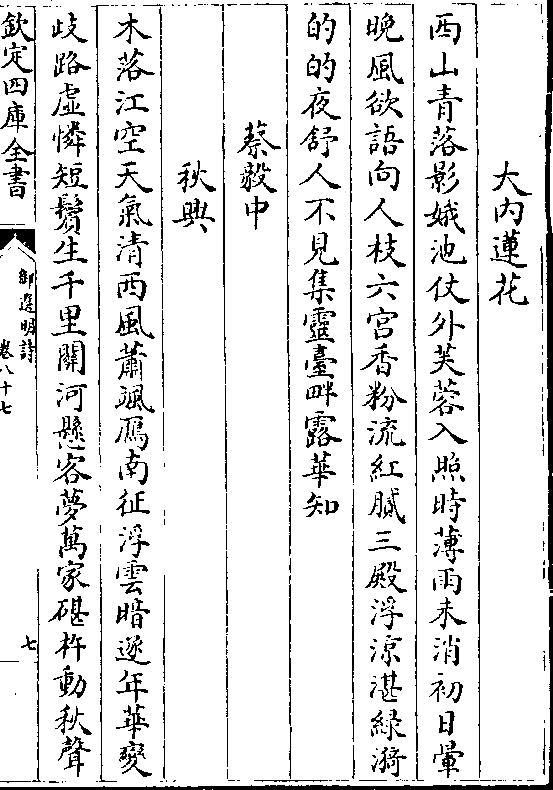 大内蓮花
西山青落影娥池仗外芙蓉入照時薄雨未消初日暈
晩風欲語向人枝六宫香粉流紅膩三殿浮涼湛緑漪
的的夜舒人不見集靈臺畔露華知
蔡毅中
秋興
木落江空天氣清西風蕭颯鴈南征浮雲暗逐年華變
歧路虛憐短鬢生千里關河懸客夢萬家碪杵動秋聲
欽定四庫全書
御選明詩
卷八十七
七